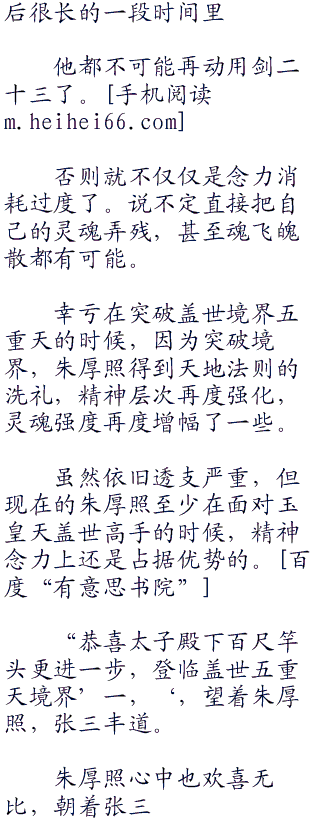 后很长的一段时间里
他都不可能再动用剑二
十三了。[手机阅读
m.heihei66.com]
否则就不仅仅是念力消
耗过度了。说不定直接把自
己的灵魂弄残，甚至魂飞魄
散都有可能。
幸亏在突破盖世境界五
重天的时候，因为突破境
界，朱厚照得到天地法则的
洗礼，精神层次再度强化，
灵魂强度再度增幅了一些。
虽然依旧透支严重，但
现在的朱厚照至少在面对玉
皇天盖世高手的时候，精神
念力上还是占据优势的。[百
度“有意思书院”]
“恭喜太子殿下百尺竿
头更进一步，登临盖世五重
天境界’一，‘，望着朱厚
照，张三丰道。
朱厚照心中也欢喜无
比，朝着张三